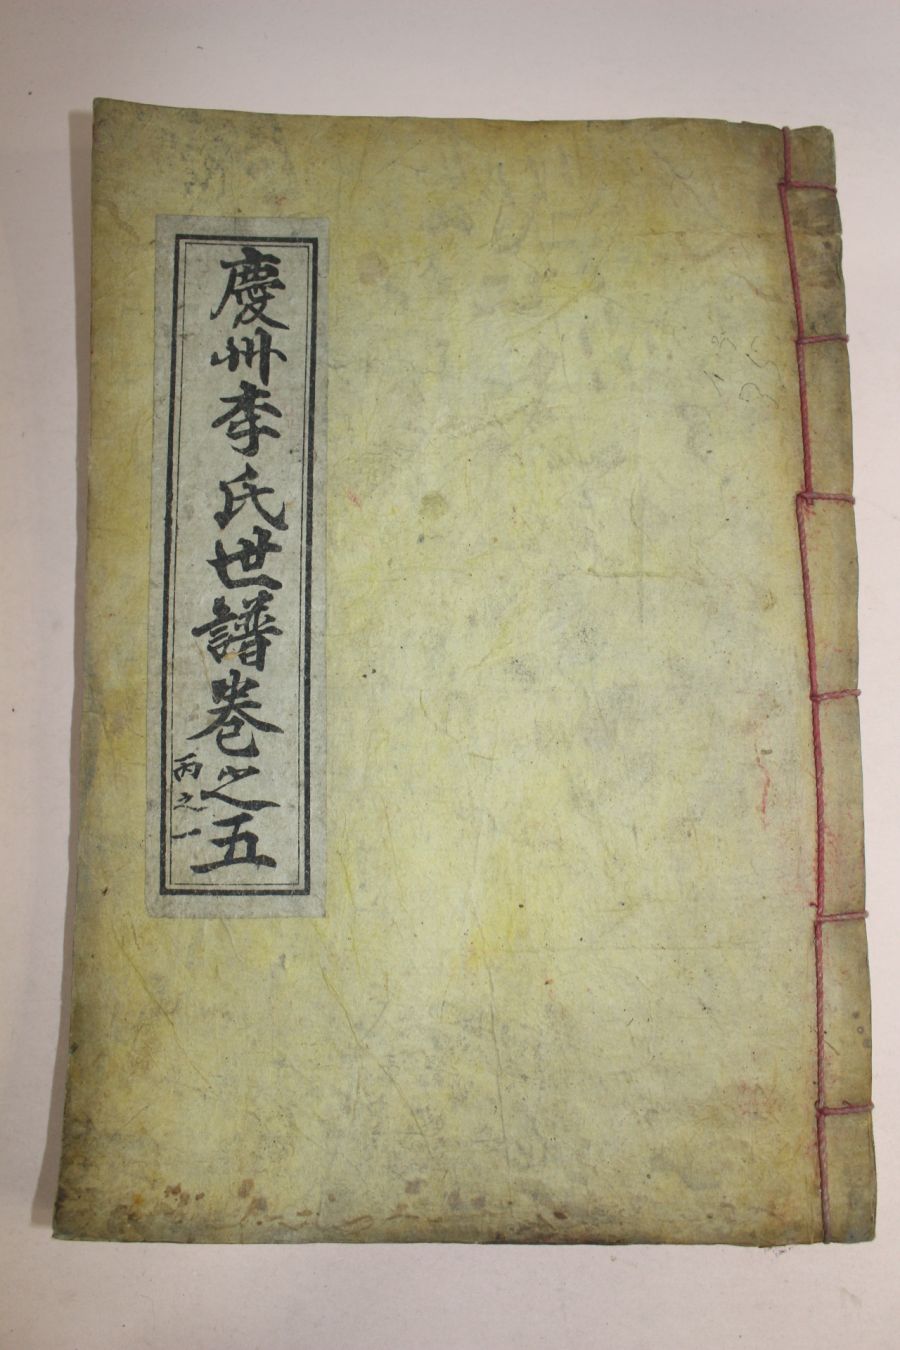 慶州李氏世譜卷之五
丙之一